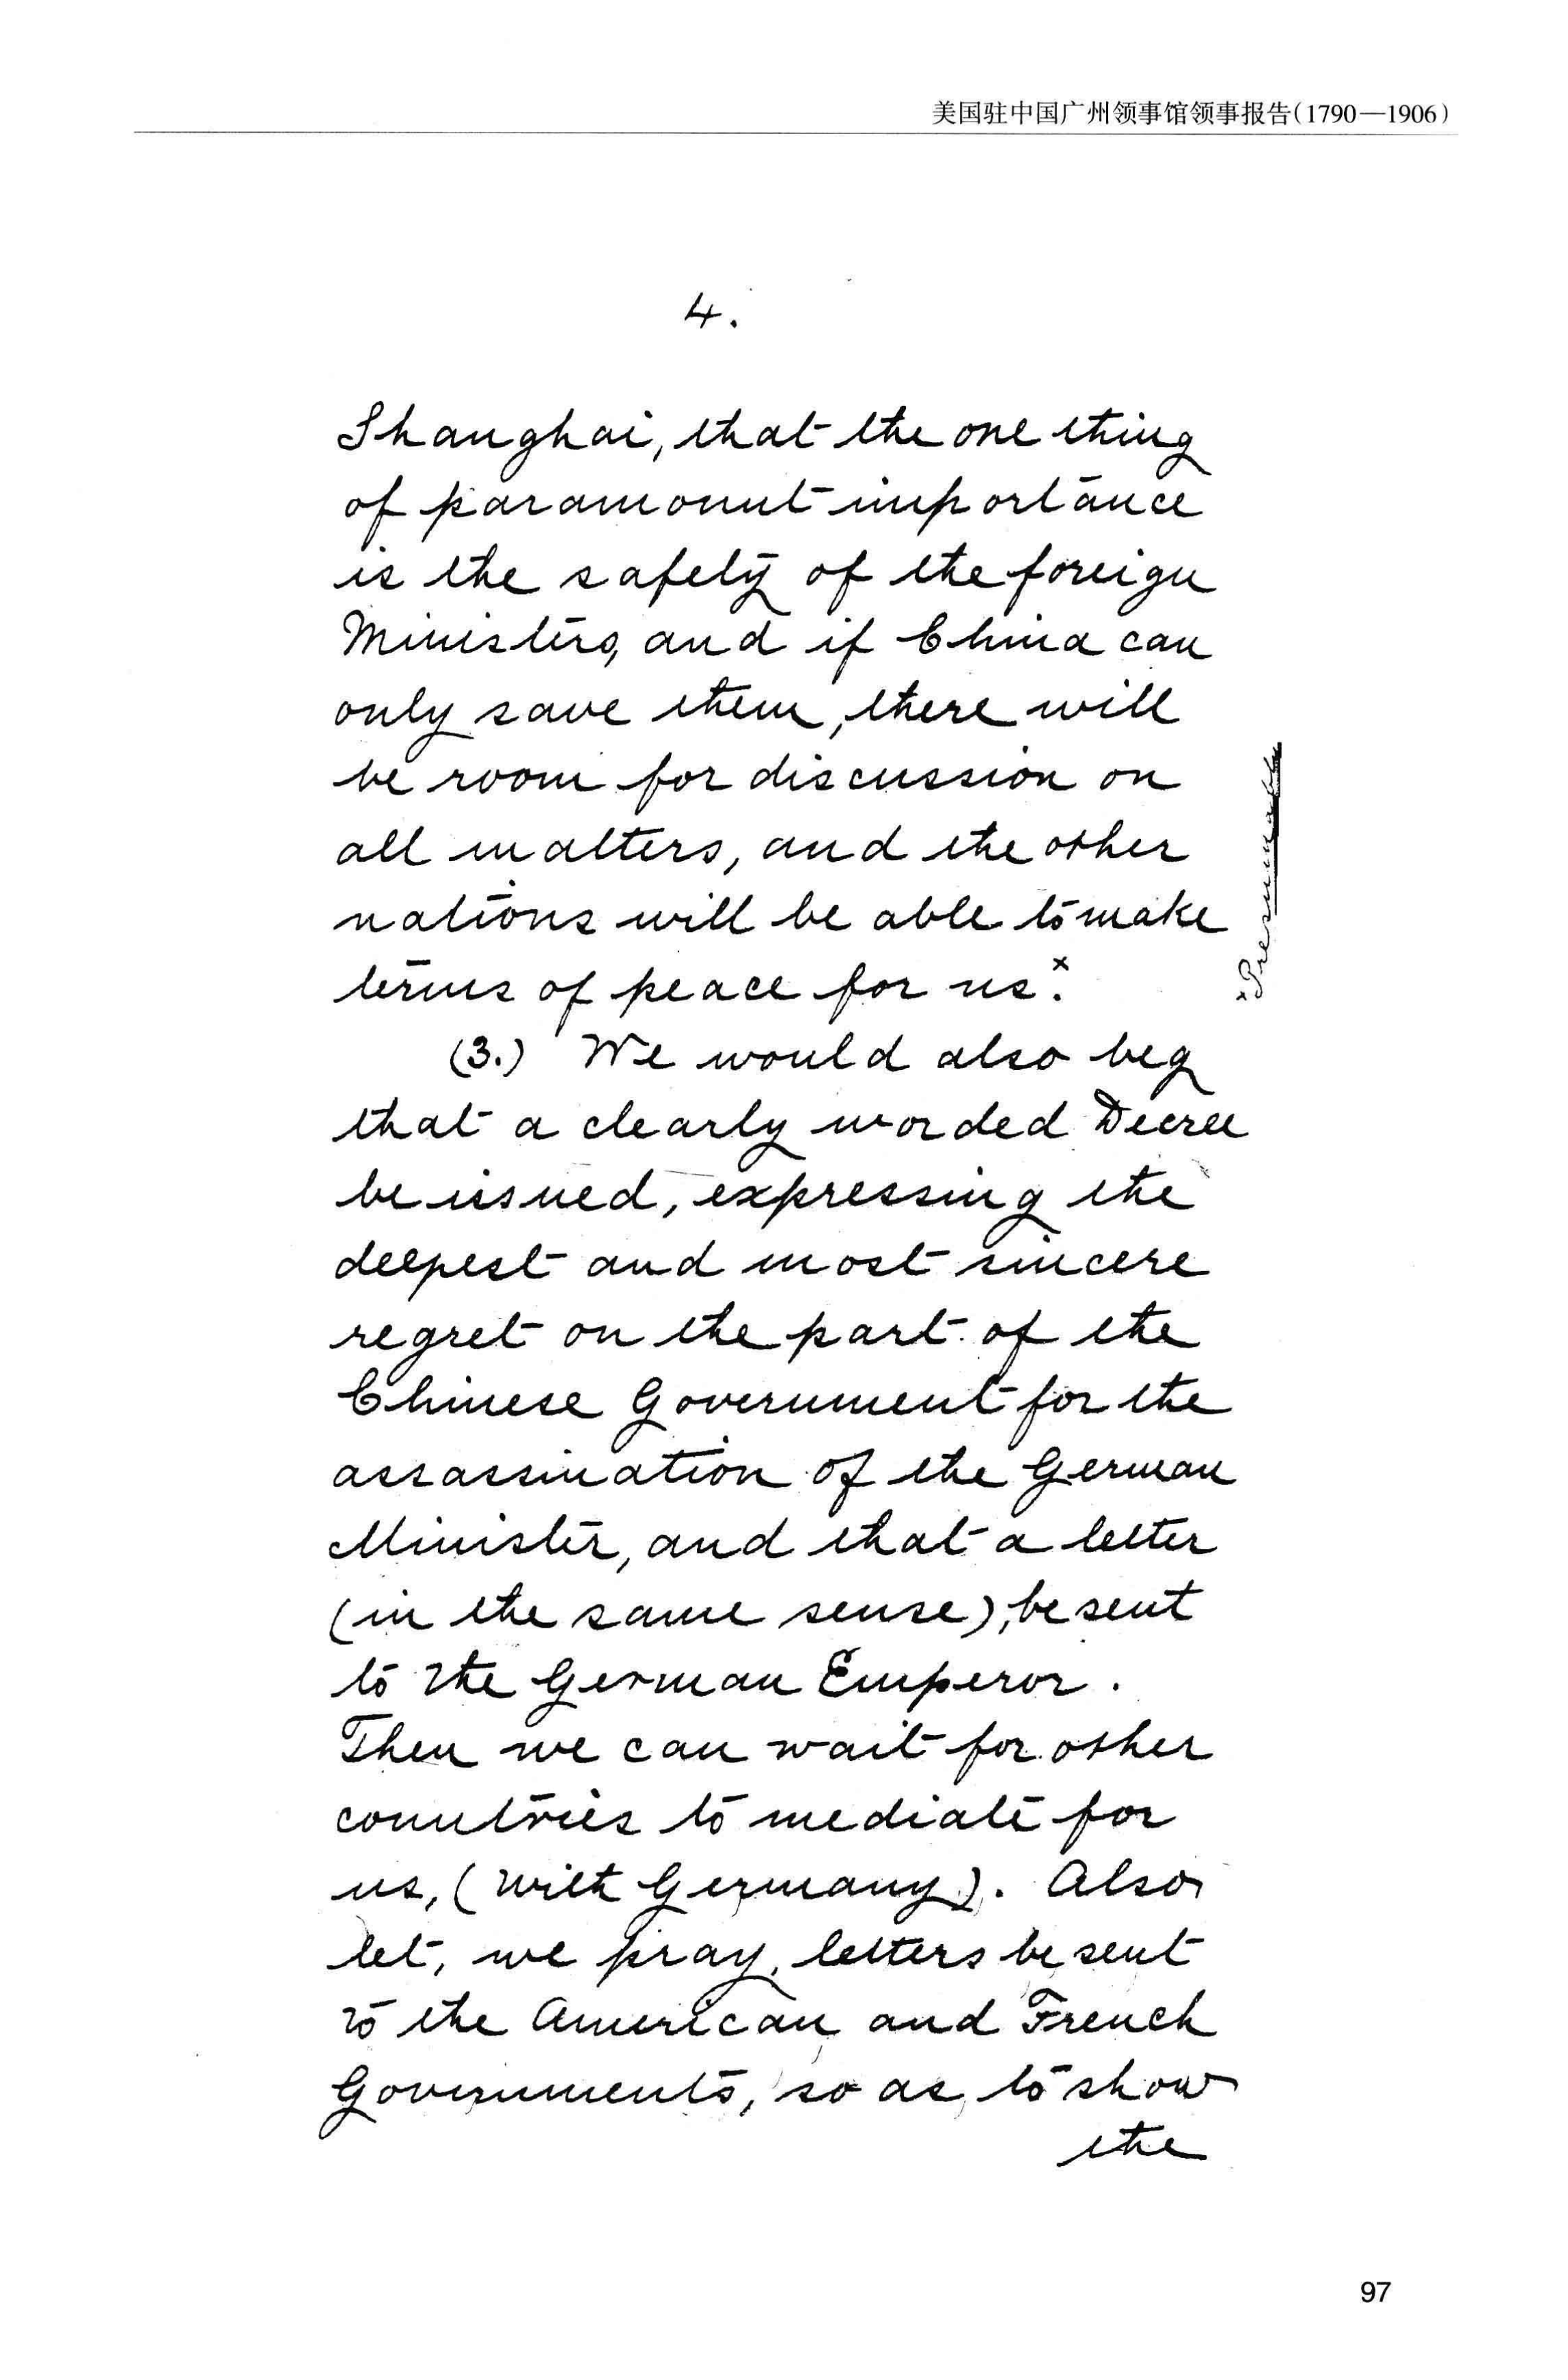 美国驻中国广州领事馆领事报告(1790—1906)
4.
Shanghai, that the one thing
of paramount importance
is the safety of the foreign
Ministers, and if China can
only save them, there will
be room for discussion on
all matters, and the other
nations will be able to make
terms of peace for us.x
x Presumably
(3.) We would also beg
that a clearly worded Decree
be issued, expressing the
deepest and most sincere
regret on the part of the
Chinese Government for the
assassination of the German
Minister, and that a letter
(in the same sense), be sent
to the German Emperor.
Then we can wait for other
countries to mediate for
us, (with Germany). Also
let, we pray, letters be sent
to the American and French
Governments, so as, to show
the
97